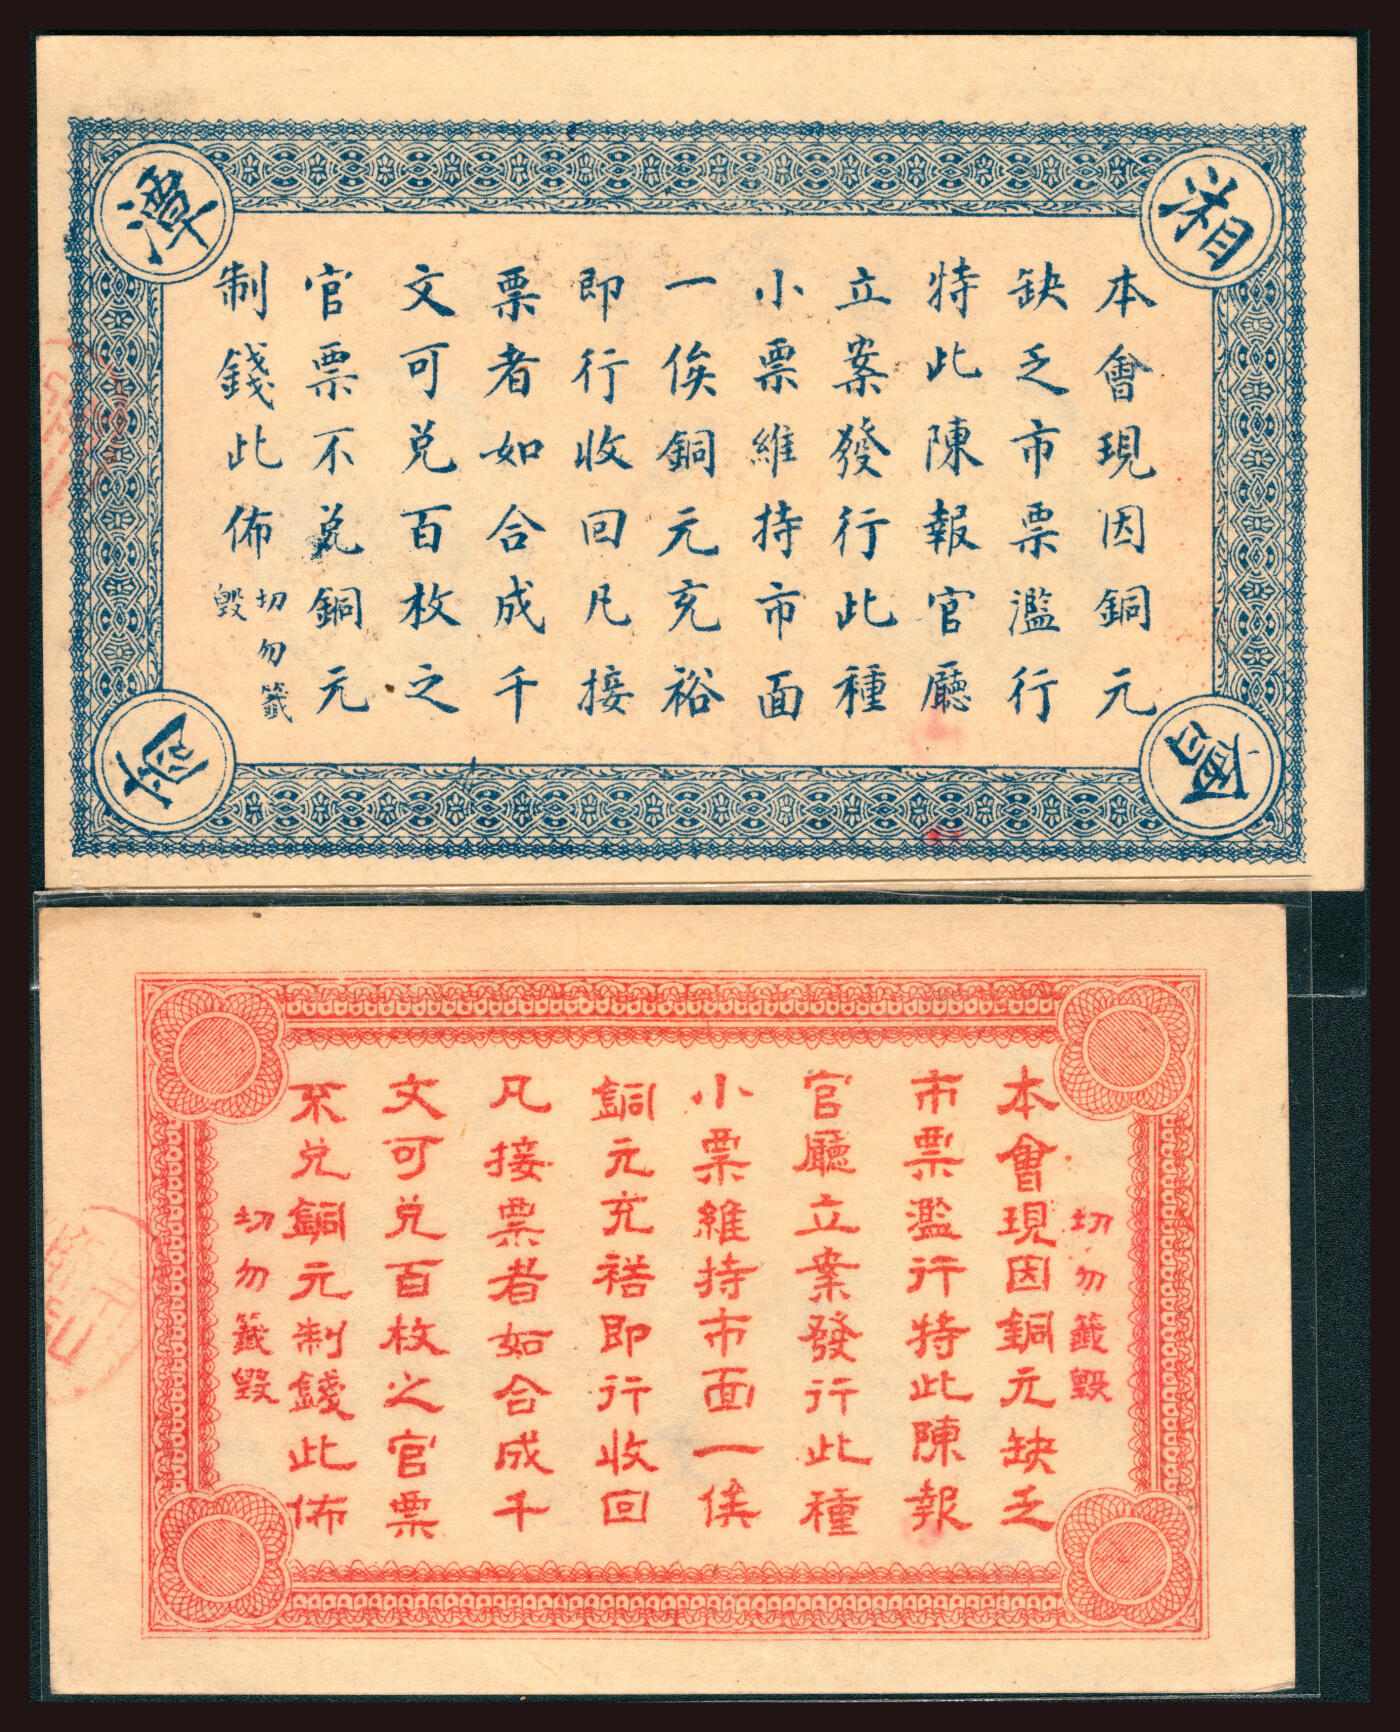 湘
潭
本會現因銅元
缺乏市票濫行
特此陳報官廳
立案發行此種
小票維持市面
一俟銅元充裕
即行收回凡接
票者如合成千
文可兌百枚之
官票不兌銅元
制錢此佈
切勿籤
毀
切勿籤毀
本會現因銅元缺乏
市票濫行特此陳報
官廳立案發行此種
小票維持市面一俟
銅元充裕即行收回
凡接票者如合成千
文可兌百枚之官票
不兌銅元制錢此佈
切勿籤毀